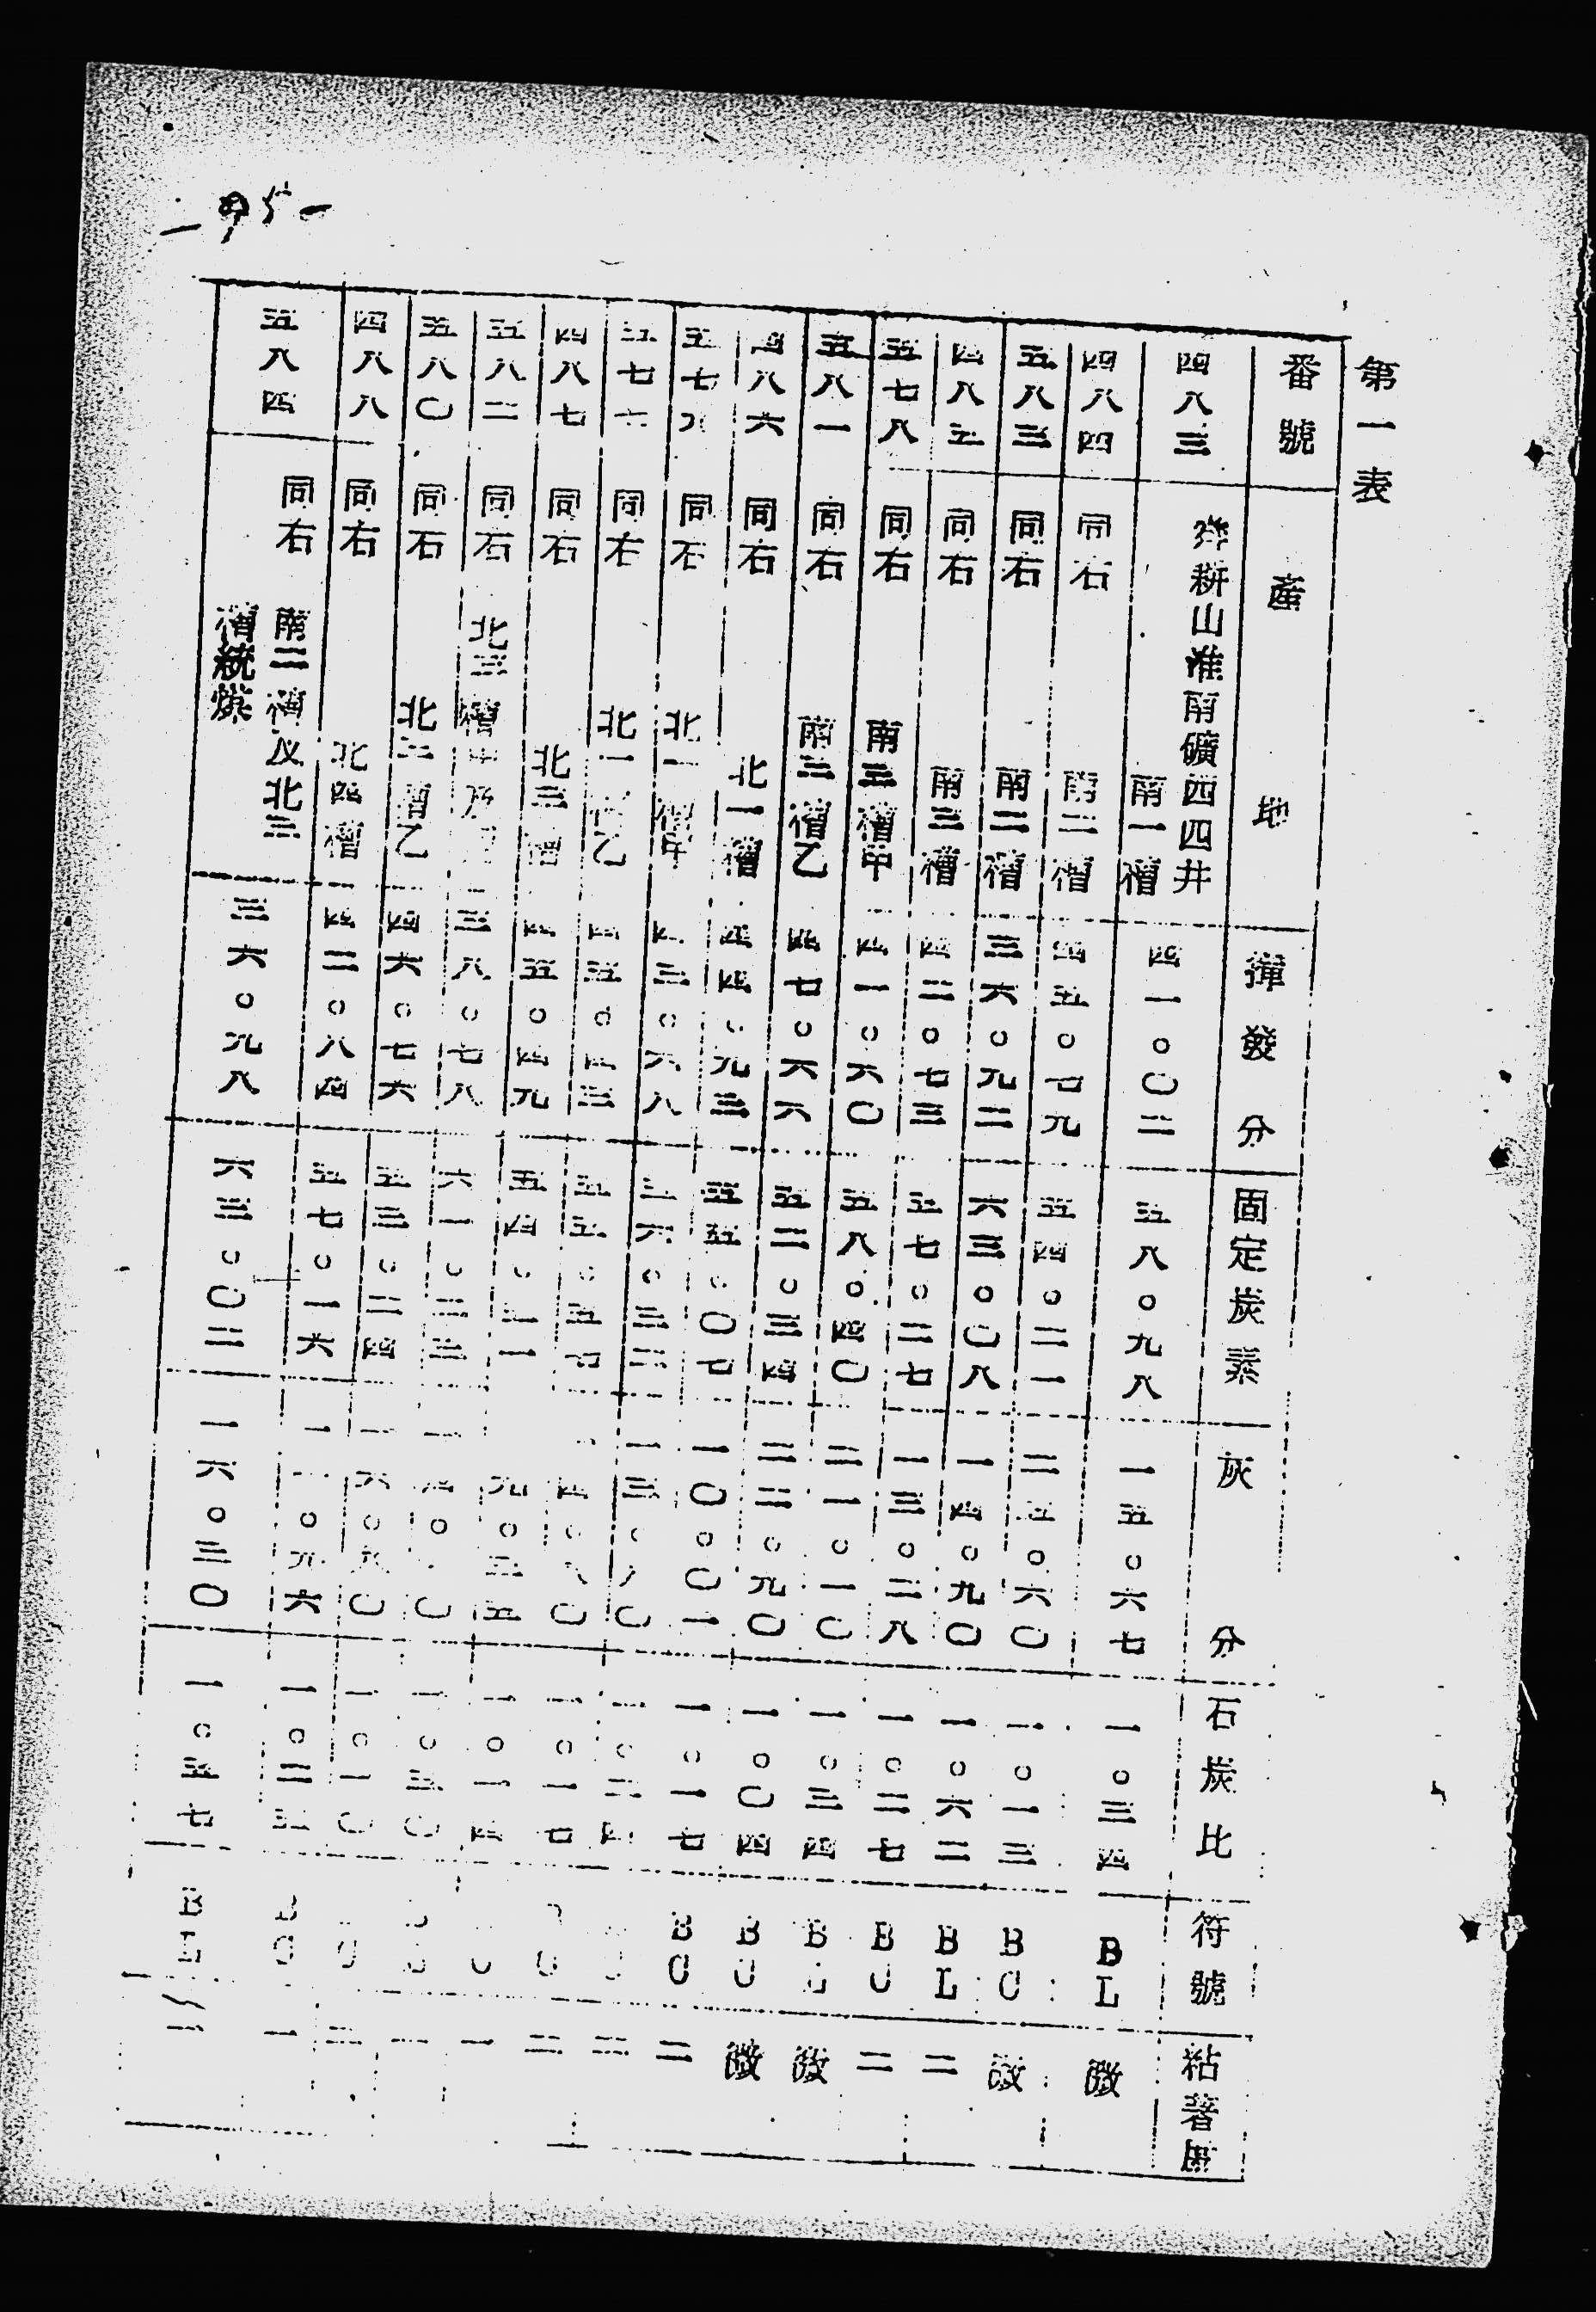 第一表
番號 產地 揮發分 固定炭素 灰分 石炭比 符號 粘著度
四八三 舜耕山淮南礦西四井
南一槽 四一。〇二 五八。九八 一五。六七 一。三四 BL 微
四八四 同右 南二槽 四五。七九 五四。二一 二五。六〇 一。一三 BU 微
五八三 同右 南二槽 三六。九二 六三。〇八 一四。九〇 一。六二 BL 二
四八五 同右 南三槽 四二。七三 五七。二七 一三。二八 一。二七 BU 二
五七八 同右 南三槽甲 四一。六〇 五八。四〇 二一。一〇 一。三四 B 微
五八一 同右 南三槽乙 四七。六六 五二。三四 二二。九〇 一。〇四 BU 微
四八六 同右 北一槽 四四。九三 五五。〇七 一〇。〇一 一。一七 BU 二
五七九 同右 北一槽甲 四三。六八 五六。三二 一三。八〇 一。二四 二
五七六 同右 北一槽乙 四四 五五。五七 四。八〇 一。一七 BU 二
四八七 同右 北三槽 四五。四九 五四。一一 九。三五 一。一四 U 一
五八二 同右 北三槽甲 三八。七八 六一。二三 一四。〇 一。五〇 B 一
五八〇 同右 北三槽乙 四六。七六 五三。二四 一六。八〇 一。一〇 U 二
四八八 同右 北四槽 四二。八四 五七。一六 一一。九六 一。二五 BU 一
五八四 同右 南二槽及北三
槽統煤 三六。九八 六三。〇二 一六。三〇 一。五七 BL 二